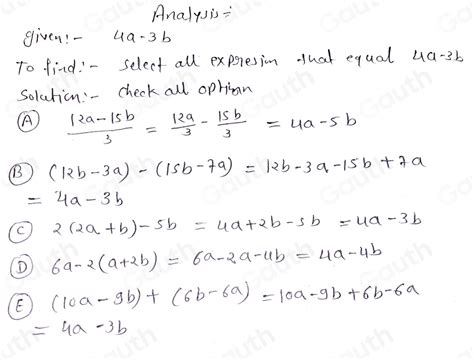 Analysis:-
Given:- 4a-3b
To find:- select all expresim that equal 4a-3b
Solution:- check all option
(A) (12a-15b)/3 = 12a/3 - 15b/3 = 4a-5b
(B) (12b-3a) - (15b-7a) = 12b-3a-15b+7a
= 4a-3b
(C) 2(2a+b)-5b = 4a+2b-5b = 4a-3b
(D) 6a-2(a+2b) = 6a-2a-4b = 4a-4b
(E) (10a-9b) + (6b-6a) = 10a-9b+6b-6a
= 4a-3b